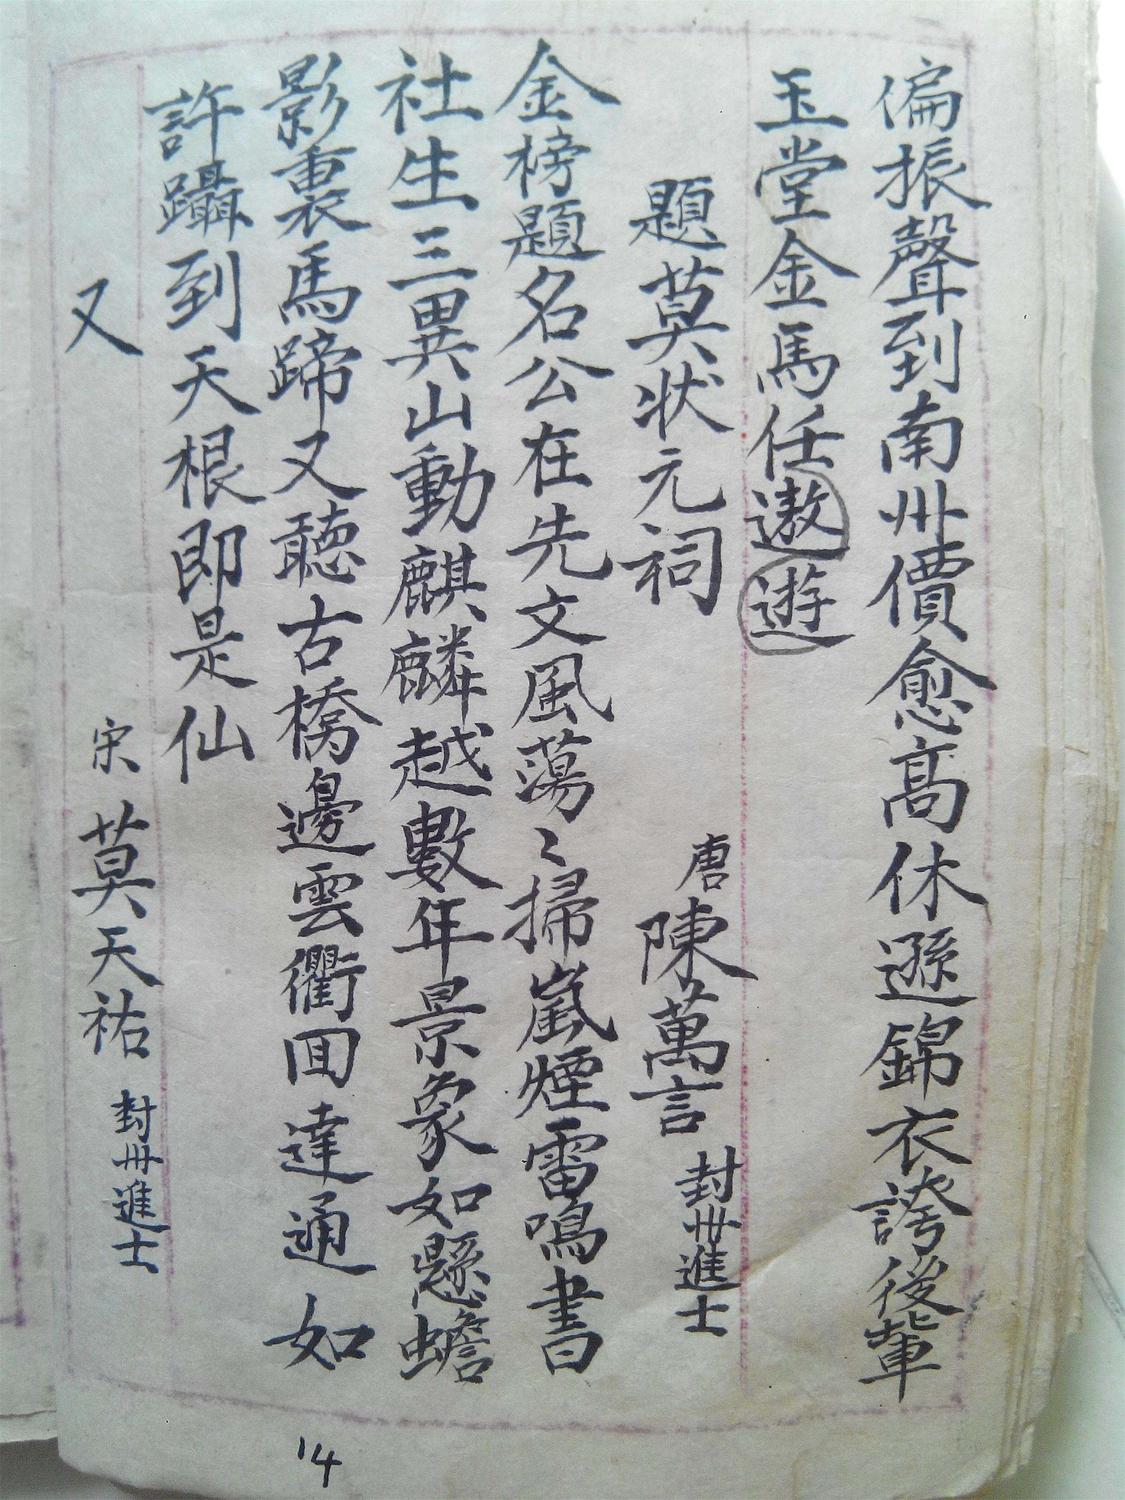 偏振聲到南州價愈高休遜錦衣誇後輩
玉堂金馬任遨遊
題莫状元祠 唐 陳萬言 封州進士
金榜題名公在先文風蕩〻掃嵐煙雷鳴書
社生三異山動麒麟越數年景象如懸蟾
影裏馬蹄又聽古橋邊雲衢囬達通如
許躡到天根即是仙
又 宋 莫天祐 封州進士
14